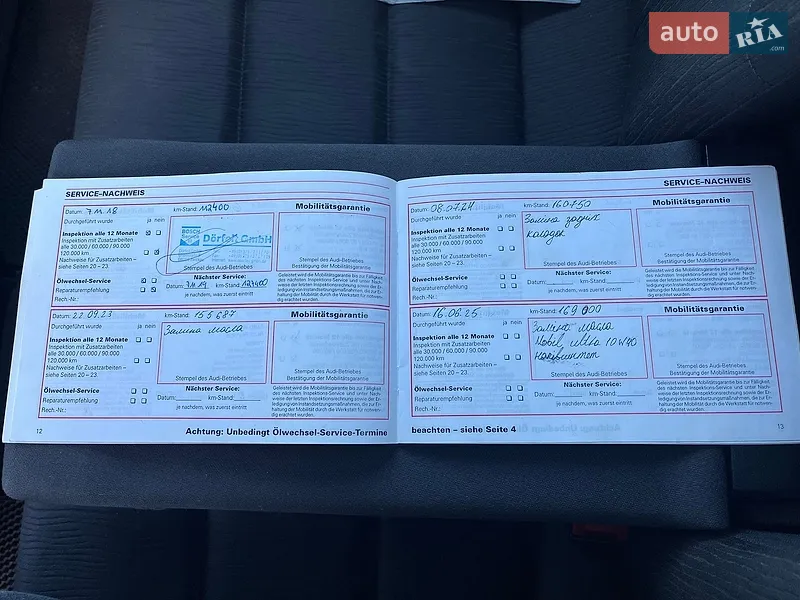 auto RIA .com
SERVICE–NACHWEIS
Datum: 7.11.18 km-Stand: 112400
Durchgeführt wurde ja nein
Inspektion alle 12 Monate
Inspektion mit Zusatzarbeiten
alle 30.000 / 60.000 / 90.000
120.000 km
Nachweise für Zusatzarbeiten –
siehe Seiten 20 – 23
Ölwechsel-Service
Reparaturempfehlung
Rech.-Nr.:
BOSCH
Service
Dörfelt GmbH
Stempel des Audi-Betriebes
Nächster Service:
Datum: 7.11.19 km-Stand:
je nachdem, was zuerst eintritt
Mobilitätsgarantie
Stempel des Audi-Betriebes
Bestätigung der Mobilitätsgarantie
Geleistet wird die Mobilitätsgarantie bis zur Fälligkeit
des nächsten Inspektions-Service und unter Nach-
weise der letzten Inspektionsrechnung sowie der Er-
ledigung von Instandsetzungsmaßnahmen, die zur Er-
haltung der Mobilität durch die Werkstatt für notwen-
dig erachtet wurden.
Datum: 22.09.23 km-Stand: 155687
Durchgeführt wurde ja nein
Inspektion alle 12 Monate
Inspektion mit Zusatzarbeiten
alle 30.000 / 60.000 / 90.000
120.000 km
Nachweise für Zusatzarbeiten –
siehe Seiten 20 – 23
Ölwechsel-Service
Reparaturempfehlung
Rech.-Nr.:
Заміна масла
Stempel des Audi-Betriebes
Nächster Service:
Datum: km-Stand:
je nachdem, was zuerst eintritt
Mobilitätsgarantie
Stempel des Audi-Betriebes
Bestätigung der Mobilitätsgarantie
Geleistet wird die Mobilitätsgarantie bis zur Fälligkeit
des nächsten Inspektions-Service und unter Nach-
weise der letzten Inspektionsrechnung sowie der Er-
ledigung von Instandsetzungsmaßnahmen, die zur Er-
haltung der Mobilität durch die Werkstatt für notwen-
dig erachtet wurden.
12
Achtung: Unbedingt Ölwechsel-Service-Termine
SERVICE–NACHWEIS
Datum: 08.07.24 km-Stand: 160750
Durchgeführt wurde ja nein
Inspektion alle 12 Monate
Inspektion mit Zusatzarbeiten
alle 30.000 / 60.000 / 90.000
120.000 km
Nachweise für Zusatzarbeiten –
siehe Seiten 20 – 23
Ölwechsel-Service
Reparaturempfehlung
Rech.-Nr.:
Заміна задніх
колодок
Stempel des Audi-Betriebes
Nächster Service:
Datum: km-Stand:
je nachdem, was zuerst eintritt
Mobilitätsgarantie
Stempel des Audi-Betriebes
Bestätigung der Mobilitätsgarantie
Geleistet wird die Mobilitätsgarantie bis zur Fälligkeit
des nächsten Inspektions-Service und unter Nach-
weise der letzten Inspektionsrechnung sowie der Er-
ledigung von Instandsetzungsmaßnahmen, die zur Er-
haltung der Mobilität durch die Werkstatt für notwen-
dig erachtet wurden.
Datum: 16.06.25 km-Stand: 169 000
Durchgeführt wurde ja nein
Inspektion alle 12 Monate
Inspektion mit Zusatzarbeiten
alle 30.000 / 60.000 / 90.000
120.000 km
Nachweise für Zusatzarbeiten –
siehe Seiten 20 – 23
Ölwechsel-Service
Reparaturempfehlung
Rech.-Nr.:
Заміна масла
Mobil ultra 10W40
Stempel des Audi-Betriebes
Nächster Service:
Datum: km-Stand:
je nachdem, was zuerst eintritt
Mobilitätsgarantie
Stempel des Audi-Betriebes
Bestätigung der Mobilitätsgarantie
Geleistet wird die Mobilitätsgarantie bis zur Fälligkeit
des nächsten Inspektions-Service und unter Nach-
weise der letzten Inspektionsrechnung sowie der Er-
ledigung von Instandsetzungsmaßnahmen, die zur Er-
haltung der Mobilität durch die Werkstatt für notwen-
dig erachtet wurden.
beachten – siehe Seite 4
13